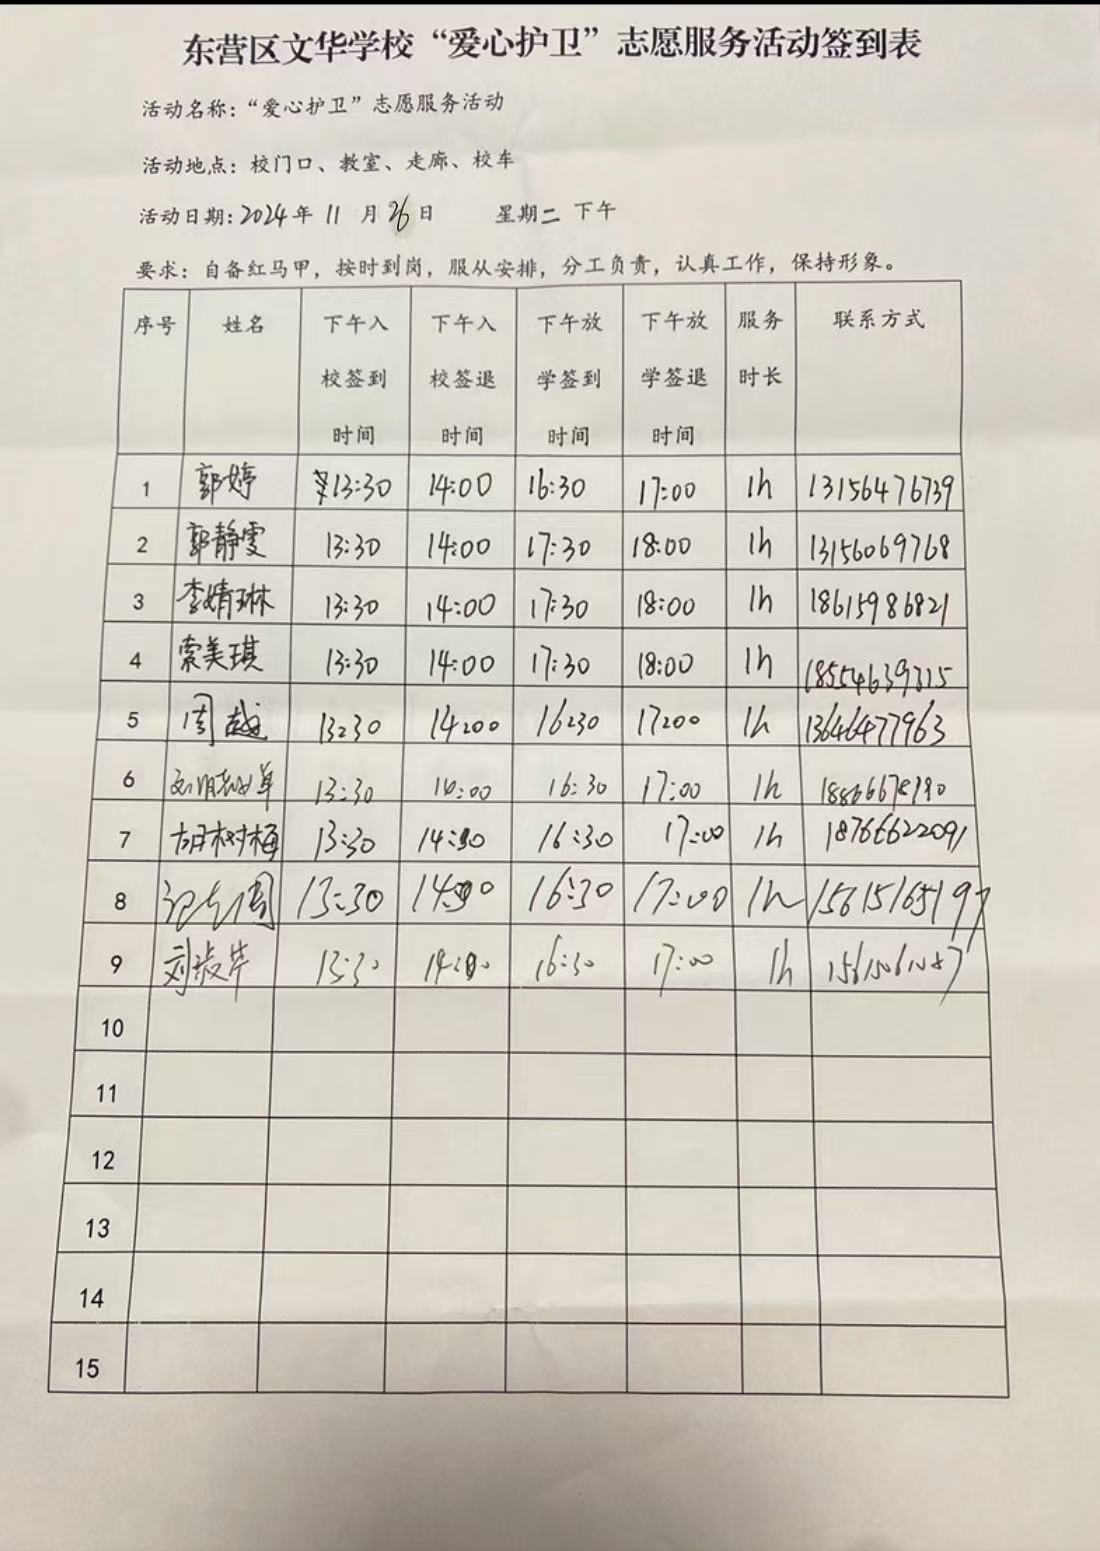 东营区文华学校“爱心护卫”志愿服务活动签到表
活动名称：“爱心护卫”志愿服务活动
活动地点：校门口、教室、走廊、校车
活动日期：2024年 11 月 26 日 星期二 下午
要求：自备红马甲，按时到岗，服从安排，分工负责，认真工作，保持形象。
序号 姓名 下午入校签到时间 下午入校签退时间 下午放学签到时间 下午放学签退时间 服务时长 联系方式
1 郭婷 13:30 14:00 16:30 17:00 1h 13156476739
2 郭静雯 13:30 14:00 17:30 18:00 1h 13156069768
3 李婧琳 13:30 14:00 17:30 18:00 1h 18615986821
4 索美琪 13:30 14:00 17:30 18:00 1h
5 周越 13:30 14:00 16:30 17:00 1h 13646477963
6 13:30 14:00 16:30 17:00 1h
7 胡树梅 13:30 14:00 16:30 17:00 1h 18766622091
8 13:30 14:00 16:30 17:00 1h 15615165197
9 刘淑芹 13:30 14:00 16:30 17:00 1h
10
11
12
13
14
15